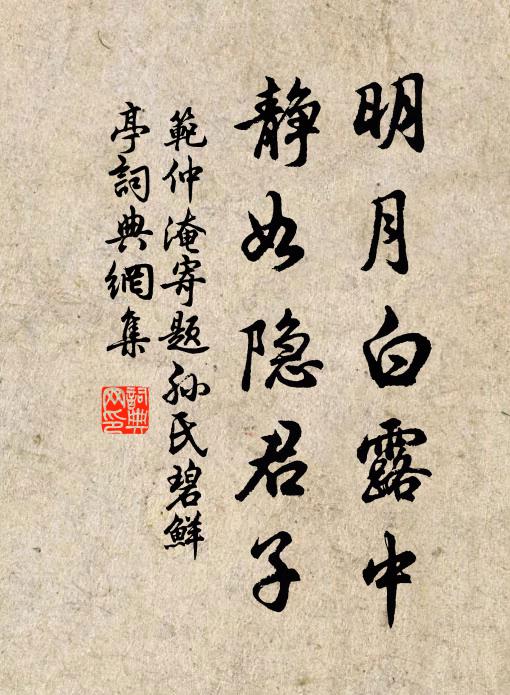 明月白露中
静如隐君子
範仲淹寄题孙氏碧鮮
亭詞典網集
詞典网印